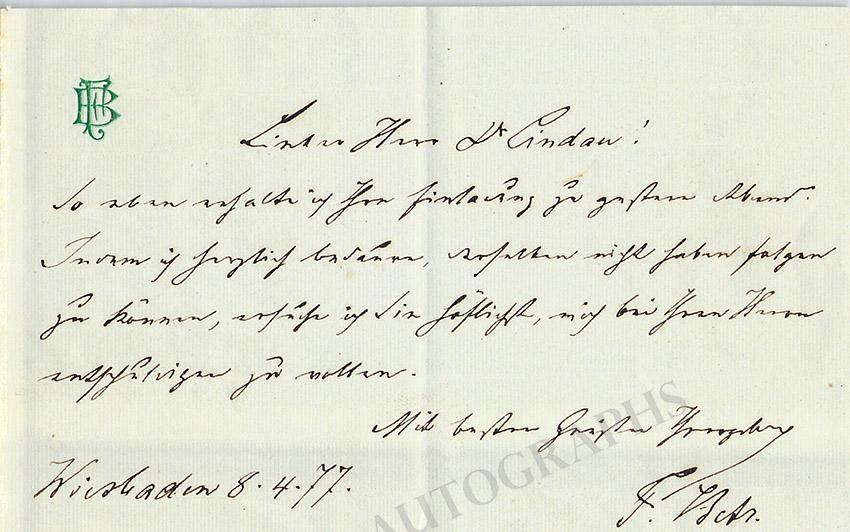 Lieber Herr Dr Lindau!
So eben erhalte ich Ihre Einladung zu gestern Abend.
Indem ich herzlich bedaure, derselben nicht haben folgen
zu können, ersuche ich Sie höflichst, mich bei Ihren Herrn
entschuldigen zu wollen.
Mit besten Grüßen
Wiesbaden 8.4.77.
F.
AUTOGRAPHS